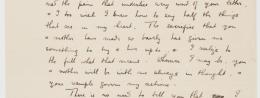 not the pain that underlies every word of your letter.
I too well I know how to say half the things
that are in my head. The sacrifice that you
mother has made so bravely has given me
something to try & live up to. I realize to
the full what that meant. Wherever I may be, you
mother will be with me always in thought.
your example govern my actions.
There is no need to tell you that